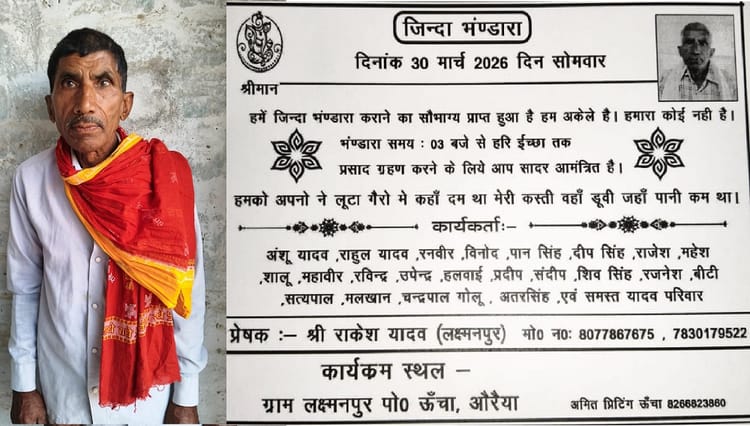 जिन्दा भंण्डारा
दिनांक 30 मार्च 2026 दिन सोमवार
श्रीमान
हमें जिन्दा भंण्डारा कराने का सौभाग्य प्राप्त हुआ है हम अकेले है। हमारा कोई नही है।
भंण्डारा समय : 03 बजे से हरि ईच्छा तक
प्रसाद ग्रहण करने के लिये आप सादर आमंत्रित है।
हमको अपनो ने लूटा गैरो मे कहाँ दम था मेरी कस्ती वहाँ डूवी जहाँ पानी कम था।
कार्यकर्ताः-
अंशू यादव ,राहुल यादव ,रनवीर ,विनोद ,पान सिंह ,दीप सिंह ,राजेश ,महेश
,शालू ,महावीर ,रविन्द्र ,उपेन्द्र ,हलवाई ,प्रदीप ,संदीप ,शिव सिंह ,रजनेश ,बीटी
,सत्यपाल ,मलखान ,चन्द्रपाल गोलू , अतरसिंह ,एवं समस्त यादव परिवार
प्रेषक :– श्री राकेश यादव (लक्ष्मनपुर) मो0 नः 8077867675 , 7830179522
कार्यकम स्थल –
ग्राम लक्ष्मनपुर पो0 ऊँचा, औरैया
अमित प्रिटिंग ऊँचा 8266823860